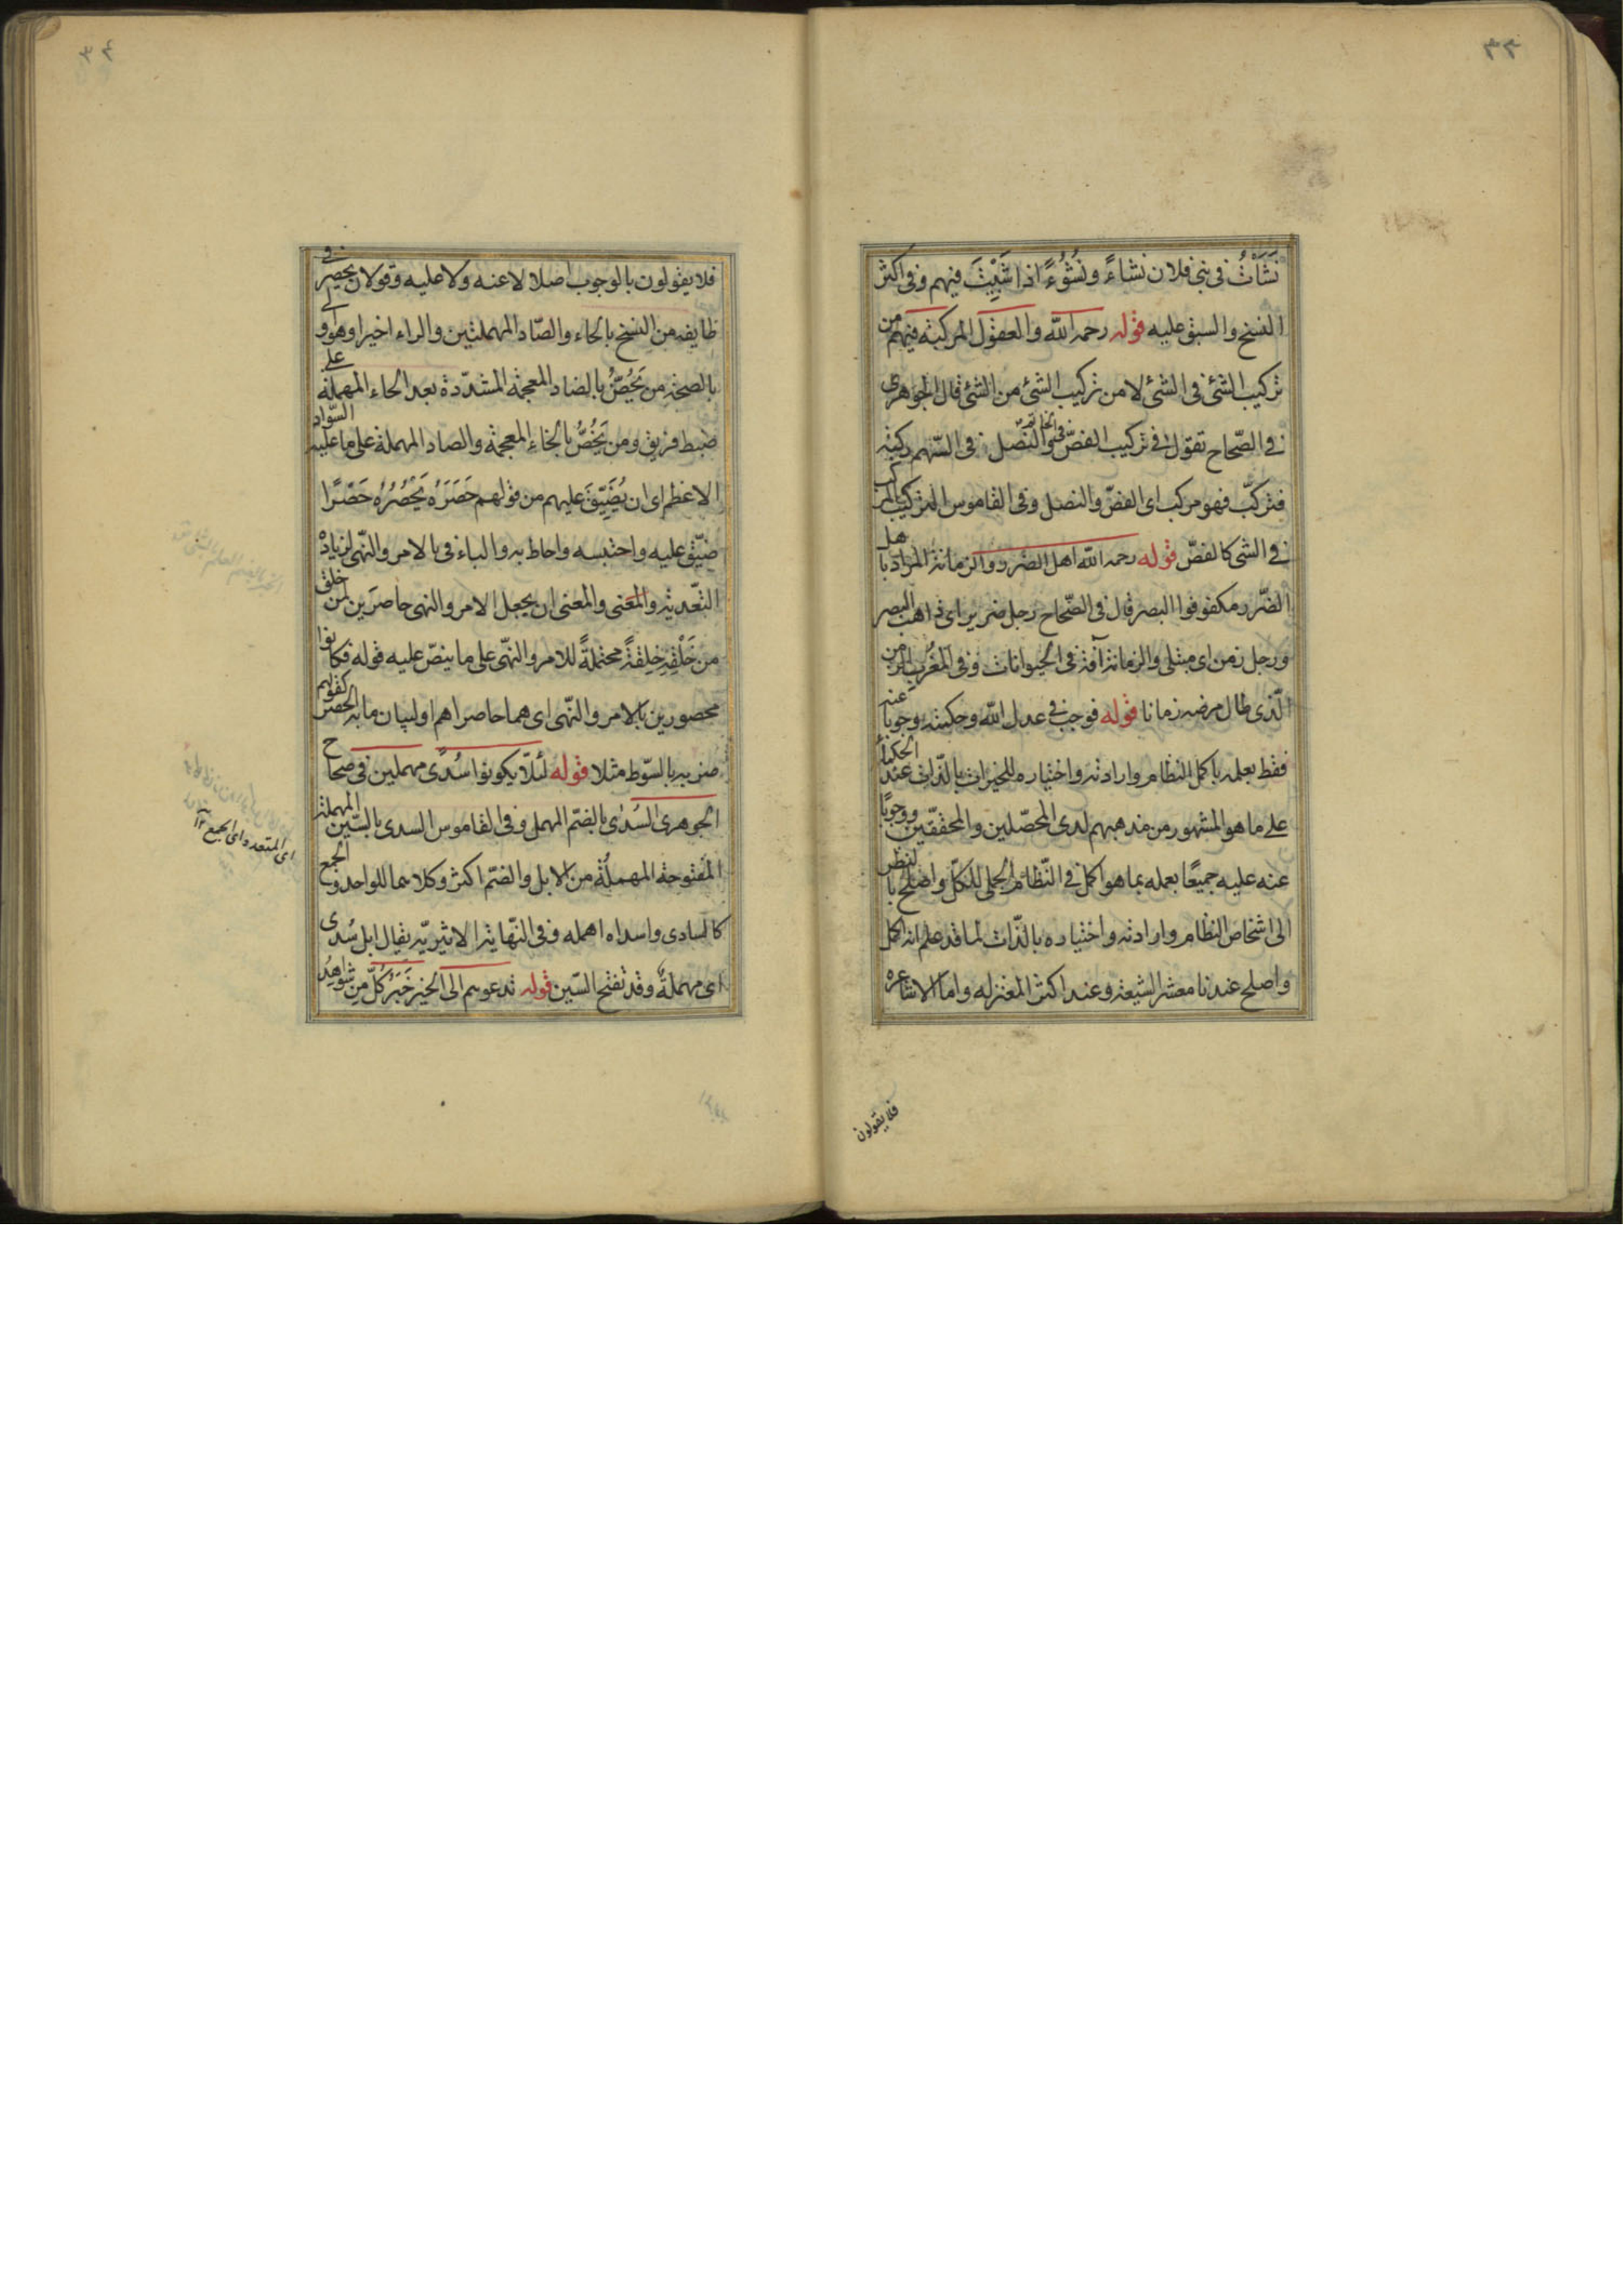 ٣٣
نَشَأْتُ فى بنى فلان نشاءً ونُشُوءً اذا شَبَبْتَ فيهم وفى اكثر
النسخ والسبق عليه قوله رحمه الله والعقول المركبة فيهم من
تركيب الشئ فى الشئ لا من تركيب الشئ من الشئ قال الجوهرى
فى الصّحاح تقول فى تركيب الفصّ فى الخاتم والنصّل فى السّهم ركبته
فتركّب فهو مركب اى الفصّ والنصل وفى القاموس المركب
فى الشى كالفصّ قوله رحمه الله اهل الضرر والزمانة المراد باهل
الضّرر مكفوفوا البصر قال فى الصّحاح رجل ضرير اى ذاهب البصر
ورجل زمن اى مبتلى والزمانة آفة فى الحيوانات وفى المُغرِب الزمن
الّذى طال مرضه زمانا قوله فوجب فى عدل الله وحكمته وجوباً عنه
فقط بعلمه باكمل النظام وارادته واختياره للخيرات بالذّات عند الحكماء
على ما هو المشهور من مذهبهم لدى المحصّلين والمحققّين ووجوبًا
عنه عليه جميعًا بعمله بما هو اكمل فى النّظام الجملى للكلّ واصلح بالنظر
الى اشخاص النظام وارادته واختياره بالذّات لما قد علم انه اكمل
واصلح عندنا معشر الشيعة وعند اكثر المعتزله واما الاشاعره
فلا يقولون
٣٤
فلا يقولون بالوجوب اصلا لا عنه ولا عليه وقولان يحصر فى
طايفه من النسخ بالحاء والصّاد المهملتين والراء اخيرا وهو اولى
بالصحّة من يَحُضُّ بالضاد المعجمة المشدّدة بعد الحاء المهملة على
ضبط فريق ومن يَخُصُّ بالخاء المعجمة والصاد المهملة على ما عليه السّواد
الاعظم اى ان يُضَيِّقَ عليهم من قولهم حَصَرَهُ يَحْصُرُه حَصْرًا
ضيّق عليه واحتبسه واحاط به والباء فى بالامر والنّهى لزيادة
التّعدية والمعنى والمعنى ان يجعل الامر والنهى حاصرَين لمن خلق
من خَلْقِهِ خِلقةً محتملةً للامر والنّهى على ما ينصّ عليه قوله فكانوا
محصورين بالامر والنّهى اى هما حاصراهم او لبيان ما به الحصر كقولهم
ضربه بالسّوط مثلا قوله لئلاّ يكونوا سُدًى مهملين فى صحاح
الجوهرى السُدى بالضمّ المهمل وفى القاموس السدى بالسّين المهملة
المفتوحة المهملةُ من الابل والضمّ اكثر وكلاهما للواحد والجمع
كالسادى واسداه اهمله وفى النّهاية الاثيريّه يقال ابل سُدى
اى مهملةٌ وقد تفتح السّين قوله تدعوهم الى الخبر خَبَرُ كلٌّ مِن شواهِدُ
اى المتعدد اى الجمع